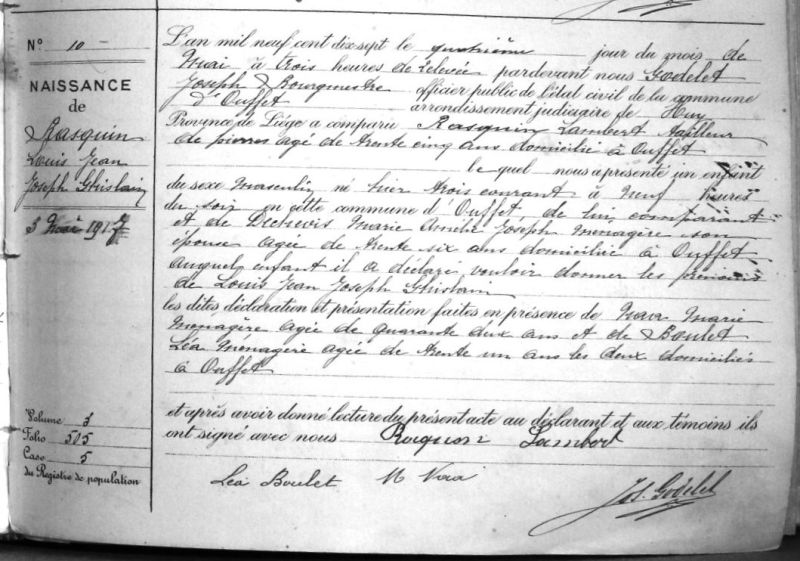 N° 10
NAISSANCE
de
Rasquin
Louis Jean
Joseph Ghislain
3 Mai 1917
L'an mil neuf cent dix sept le quatrième jour du mois de
Mai à trois heures de relevée pardevant nous Godelet
Joseph Bourgmestre officier public de l'état civil de la commune
d'Ouffet arrondissement judiciaire de Huy
Province de Liège a comparu Rasquin Lambert tailleur
de pierres agé de trente cinq ans domicilié à Ouffet
lequel nous a présenté un enfant
du sexe masculin né hier trois courant à neuf heures
du soir en cette commune d'Ouffet, de lui comparant
et de Marie Amélie Joseph Ménagère son
épouse agée de trente six ans domiciliée à Ouffet
auquel enfant il a déclaré vouloir donner les prénoms
de Louis Jean Joseph Ghislain
les dites déclaration et présentation faites en présence de Marie
Ménagère agée de quarante deux ans et de Boulet
Léa Ménagère agée de trente un ans les deux domiciliés
à Ouffet
et après avoir donné lecture du présent acte au déclarant et aux témoins ils
ont signé avec nous Rasquin Lambert
Volume 3
Folio 505
Case 5
du Registre de population
Léa Boulet M
Jos. Godelet